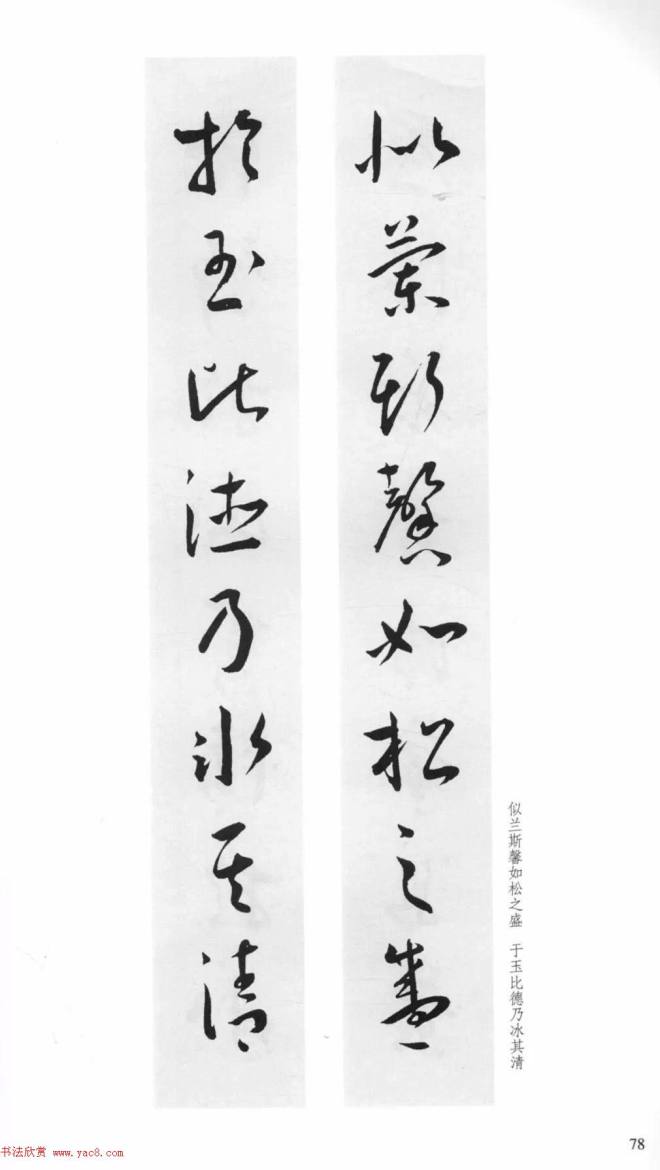 似蘭斯馨如松之盛
於玉比德乃冰其清
似兰斯馨如松之盛 于玉比德乃冰其清
78
书法欣赏 www.yac8.com